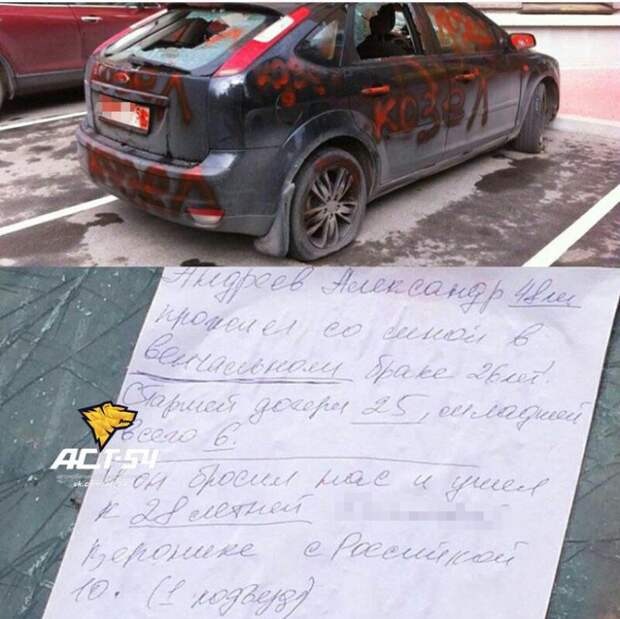 КОЗЁЛ
КОЗЕЛ
КОЗЕЛ
Андреев Александр 48 лет
прожил со мной в
венчальном браке 26 лет.
Старшей дочери 25, младшей
всего 6.
И он бросил нас и ушел
к 28 летней
Веронике с Российкой
10. (1 подъезд)
АСТ-54